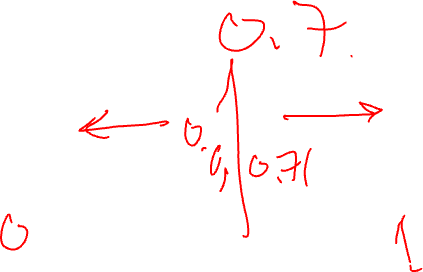 0.7.
0.
0.71
0
1